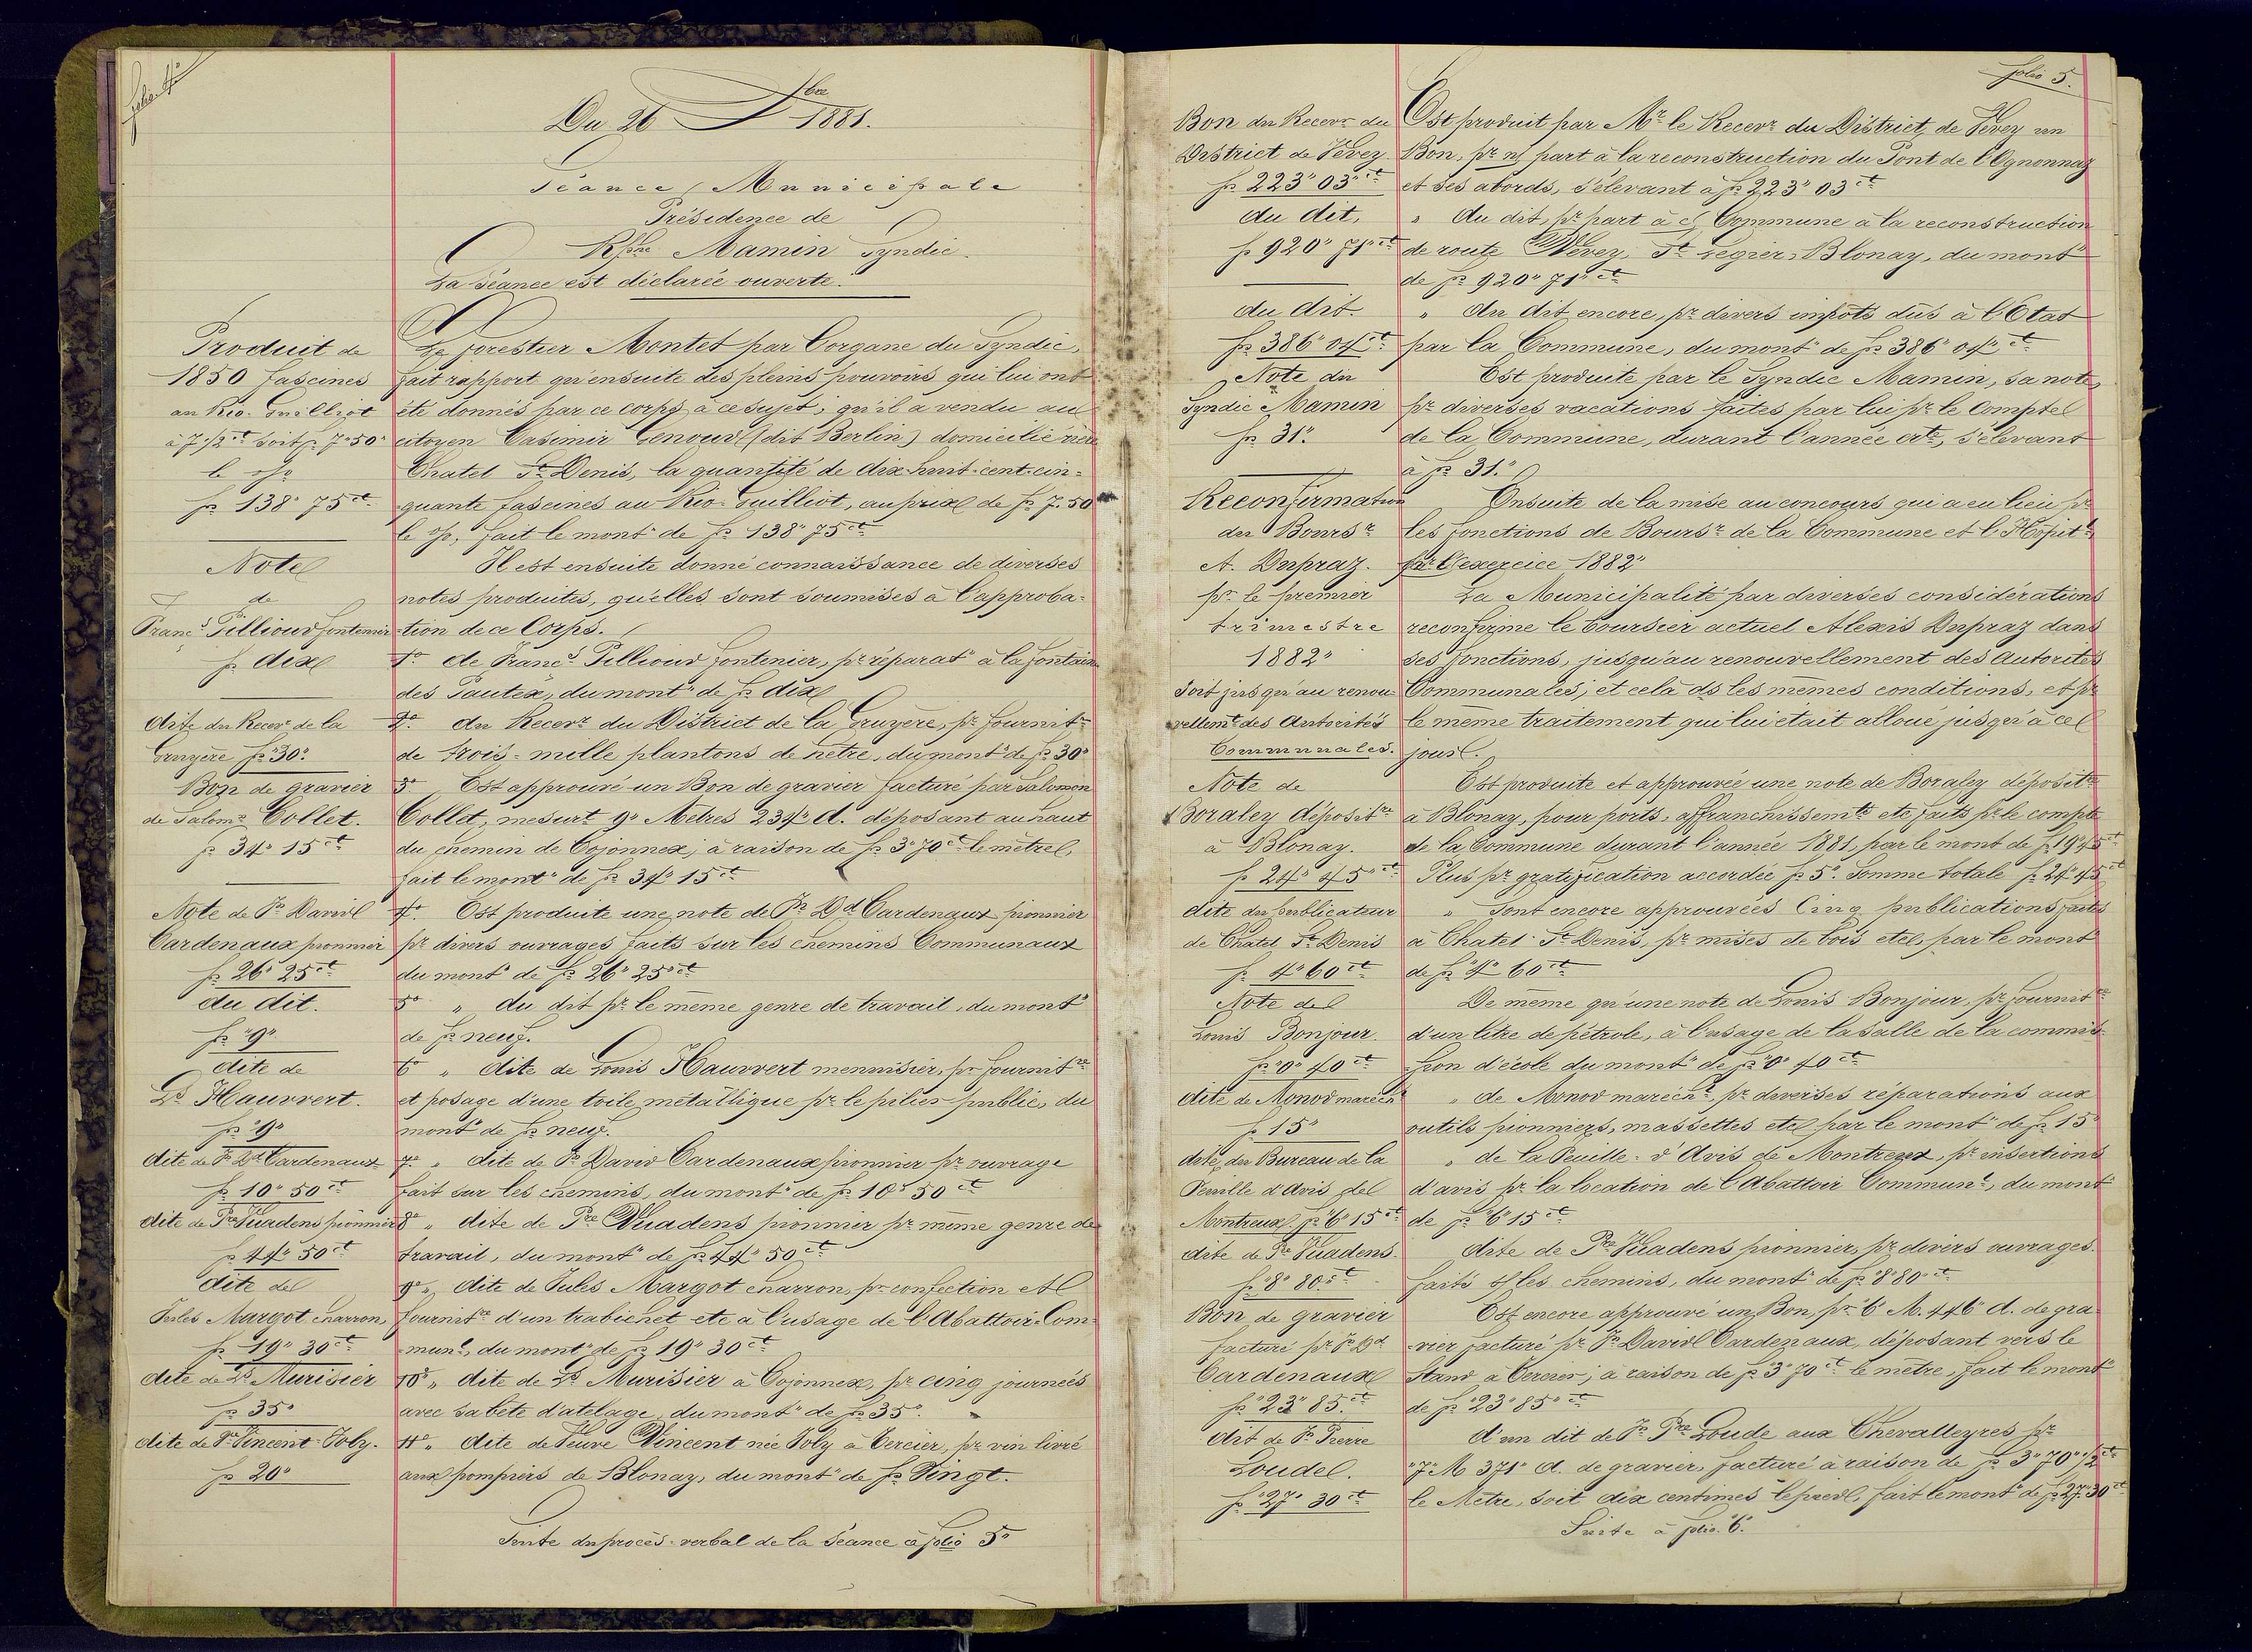 folio 4
Du 26 Xbre 1881.
Séance Municipale
Présidence de
Mamin Syndic.
La Séance est déclarée ouverte.
Produit de
1850 fascines
au Rio-Guilliot
à 7 1/2 ct soit fr 7"50"
le %
fr 138" 75 ct
Le forestier Montet par l'organe du Syndic,
fait rapport qu'ensuite des pleins pouvoirs qui lui ont
été donnés par ce corps à ce sujet, qu'il a vendu au
citoyen Casimir Genoud (dit Berlin) domicilié rière
Chatel St Denis, la quantité de dix-huit-cent-cin=
quante fascines au Rio-Guilliot, au prix de fr 7.50
le %, fait le mont" de fr 138" 75 ct
Note
de
Francs Pillioud fontenier
fr dix
Il est ensuite donné connaissance de diverses
notes produites, qu'elles sont soumises à l'approba=
tion de ce Corps.
1° de Francs Pillioud fontenier, pr réparat° à la fontaine
des Pautex, du mont" de fr dix
dite du Recevr de la
Gruyère fr "30"
2° du Recevr du District de la Gruyère, pr fournitre
de trois-mille plantons de hêtre, du mont" de fr 30"
Bon de gravier
de Salomn Collet.
fr 34" 15 ct
3° Est approuvé un Bon de gravier facturé par Salomon
Collet, mesurt 9" Mètres 234" d. déposant au haut
du chemin de Cojonnex, à raison de fr 3"70 ct le mètre,
fait le mont" de fr 34" 15 ct
Note de Fs David
Cardenaux pionnier
fr 26" 25 ct
4° Est produite une note de Fs Dd Cardenaux pionnier
pr divers ouvrages faits sur les chemins Communaux
du mont" de fr 26" 25 ct
du dit.
fr "9"
5° " du dit pr le même genre de travail, du mont"
de fr neuf.
dite de
Ls Hauvert.
fr "9"
6° " dite de Louis Hauvert menuisier, pr fournitre
et posage d'une toile métallique pr le pilier public, du
mont" de fr neuf.
dite de Fs Dd Cardenaux
fr 10" 50 ct
7° " dite de Fs David Cardenaux pionnier pr ouvrage
fait sur les chemins, du mont" de fr 10" 50 ct
dite de Pre Vuadens pionnier
fr 44" 50 ct
8° " dite de Pre Vuadens pionnier pr même genre de
travail, du mont" de fr 44" 50 ct
dite de
Jules Margot charron
fr 19" 30 ct
9° " dite de Jules Margot charron, pr confection et
fournitre d'un trabichet etc à l'usage de l'Abattoir Com=
munl, du mont" de fr 19" 30 ct
dite de Ls Murisier
fr 35"
10° " dite de Ls Murisier à Cojonnex, pr cinq journées
avec sa bête d'atelage, du mont" de fr 35".
dite de Ve Vincent-Joly.
fr 20"
11° " dite de Veuve Vincent née Joly à Cercier, pr vin livré
aux pompiers de Blonay, du mont" de fr Vingt.
Suite du procès-verbal de la Séance à folio 5"
folio 5.
Bon du Recevr du
District de Vevey
fr 223" 03 ct
Est produit par Mr le Recevr du District de Vevey un
Bon, pr n/ part à la reconstruction du Pont de l'Ognonnaz
et ses abords, s'élevant à fr 223" 03 ct
du dit,
fr 920" 71 ct
" du dit, pr part à c/ Commune à la reconstruction
de route Vevey, St Legier, Blonay, du mont"
de fr 920" 71 ct
du dit.
fr 386" 04 ct
" du dit encore, pr divers impots dûs à l'Etat
par la Commune, du mont" de fr 386" 04 ct
Note du
Syndic Mamin
fr 31".
Est produite par le Syndic Mamin, sa note,
pr diverses vacations faites par lui pr le Compte
de la Commune, durant l'année crte, s'élevant
à fr 31."
Reconfirmation
du Boursr
A. Dupraz.
pr le premier
trimestre
1882"
soit jusqu'au renou=
vellemt des Autorités
Communales.
Ensuite de la mise au concours qui a eu lieu pr
les fonctions de Boursr de la Commune et l'Hôpitl
pr l'exercice 1882"
La Municipalité par diverses considérations
reconfirme le boursier actuel Alexis Dupraz dans
ses fonctions, jusqu'au renouvellement des Autorités
Communales, et celà ds les mêmes conditions, et pr
le même traitement qui lui était alloué jusqu'à ce
jour.
Note de
Boraley déposite
à Blonay.
fr 24" 45 ct
Est produite et approuvée une note de Boraley déposite
à Blonay, pour ports, affranchissemts etc faits pr le compte
de la Commune durant l'année 1881, par le mont de fr 19"45 ct
Plus pr gratification accordée fr 5". Somme totale fr 24"45 ct
dite du publicateur
de Chatel St Denis
fr 4"60 ct
" Sont encore approuvées Cinq publications faites
à Chatel St Denis, pr mises de bois etc, par le mont
de fr "4" 60 ct
Note de
Louis Bonjour.
fr "0" 40 ct
De même qu'une note de Louis Bonjour, pr fournitre
d'un litre de pétrole, à l'usage de la salle de la commis=
sion d'école du mont" de fr "0" 40 ct
dite de Monod marechl
fr 15"
" de Monod marechl, pr diverses réparations aux
outils pionniers, massettes etc par le mont" de fr 15"
dite du Bureau de la
Feuille d'Avis de
Montreux. fr "6" 15 ct
" de la Feuille-d'Avis de Montreux, pr insertions
d'avis pr la location de l'Abattoir Communl, du mont"
de fr "6" 15 ct
dite de Pre Vuadens
fr "8" 80 ct
dite de Pre Vuadens pionnier, pr divers ouvrages
faits s/ les chemins, du mont" de fr "8" 80 ct
Bon de gravier
facturé pr Fs Dd
Cardenaux
fr "23" 85 ct
Est encore approuvé un Bon, pr "6" M. 446" d. de gra=
vier facturé pr Fs David Cardenaux, déposant vers le
Stand à Cercier, à raison de fr "3" 70 ct le mètre, fait le mont"
de fr "23" 85 ct
dit de Fs Pierre
Loude.
fr "27" 30 ct
d'un dit de Fs Pre Loude aux Chevalleyres pr
"7" M 371" d. de gravier, facturé à raison de fr 3"70" 1/2 ct
le Mètre, soit dix centimes le pied, fait le mont" de fr 27"30 ct
Suite à folio "6".